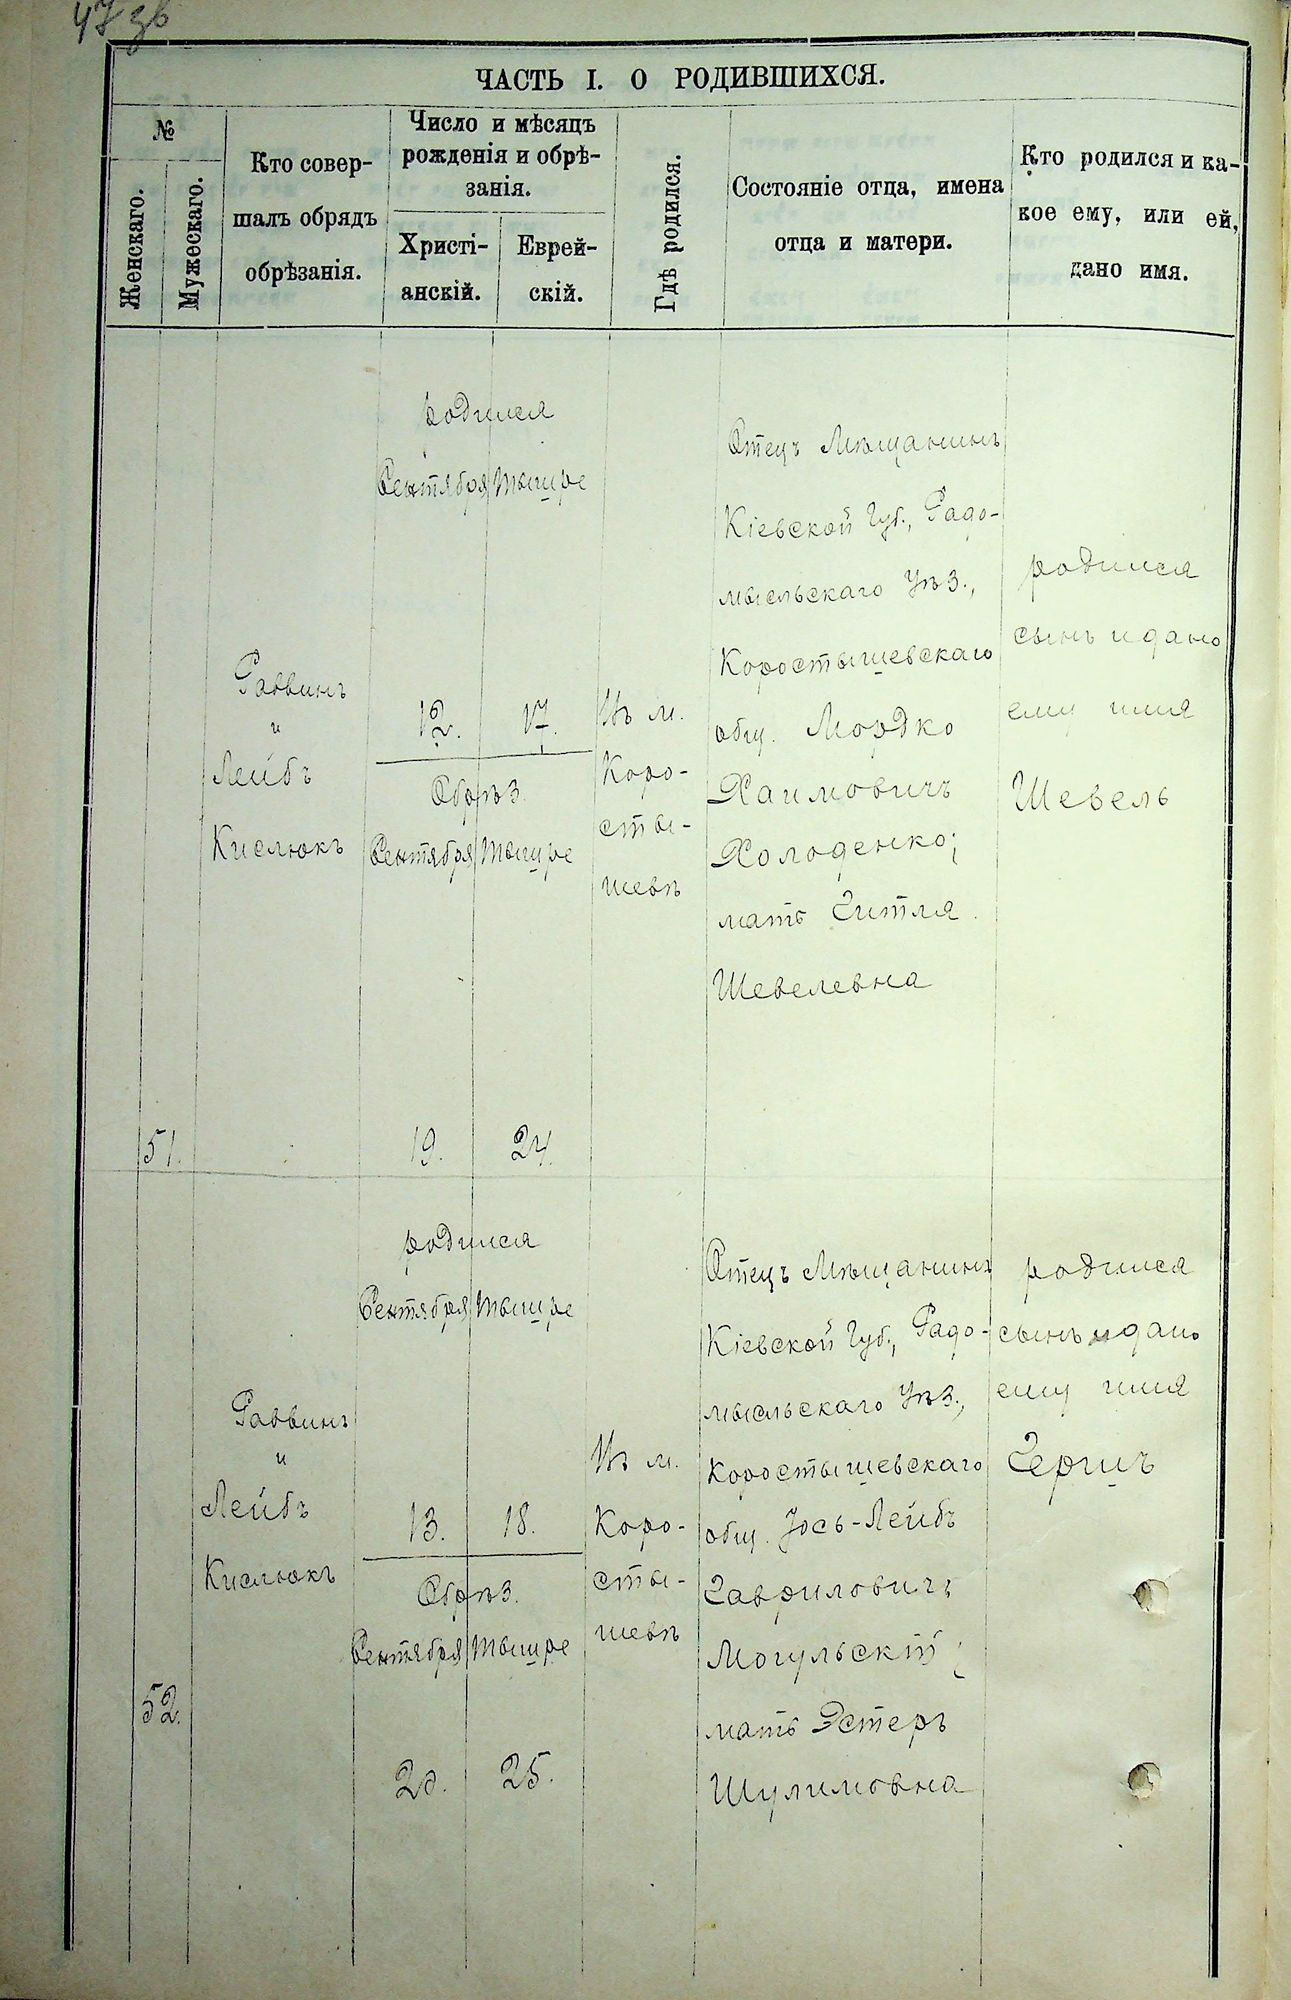 47 зв
ЧАСТЬ I. О РОДИВШИХСЯ.
№
Женскаго.
Мужескаго.
Кто совер-
шалъ обрядъ
обрѣзанія.
Число и мѣсяцъ
рожденія и обрѣ-
занія.
Христі-
анскій.
Еврей-
скій.
Гдѣ родился.
Состояніе отца, имена
отца и матери.
Кто родился и ка-
кое ему, или ей,
дано имя.
51.
Раввинъ
и
Лейбъ
Кислюкъ
родился
Сентября Тышре
12. 17.
Обрѣз.
Сентября Тышре
19. 24.
Въ м.
Коро-
сты-
шевѣ
Отецъ Мѣщанинъ
Кіевской Губ., Радо-
мысльскаго Уѣз.,
Коростышевскаго
общ. Мордко
Хаимовичъ
Холоденко;
мать Гитля
Шевелевна
родился
сынъ и дано
ему имя
Шевель
52.
Раввинъ
и
Лейбъ
Кислюкъ
родился
Сентября Тышре
13. 18.
Обрѣз.
Сентября Тышре
20. 25.
Въ м.
Коро-
сты-
шевѣ
Отецъ Мѣщанинъ
Кіевской Губ., Радо-
мысльскаго Уѣз.,
Коростышевскаго
общ. Іось-Лейбъ
Гавриловичъ
Могульскій;
мать Эстеръ
Шулимовна
родился
сынъ и дано
ему имя
Герщъ